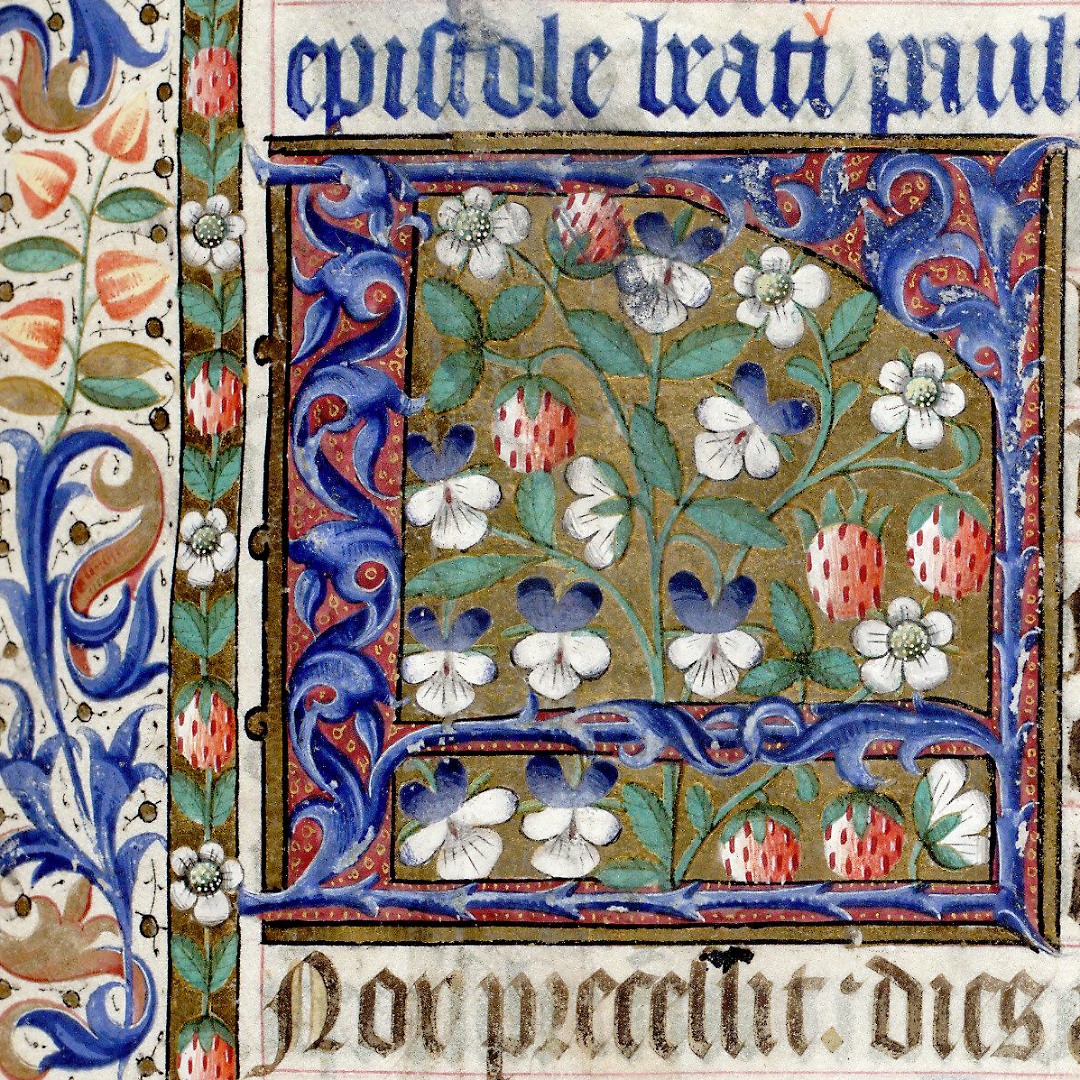 epistole beati paul
Nor precellit: dies